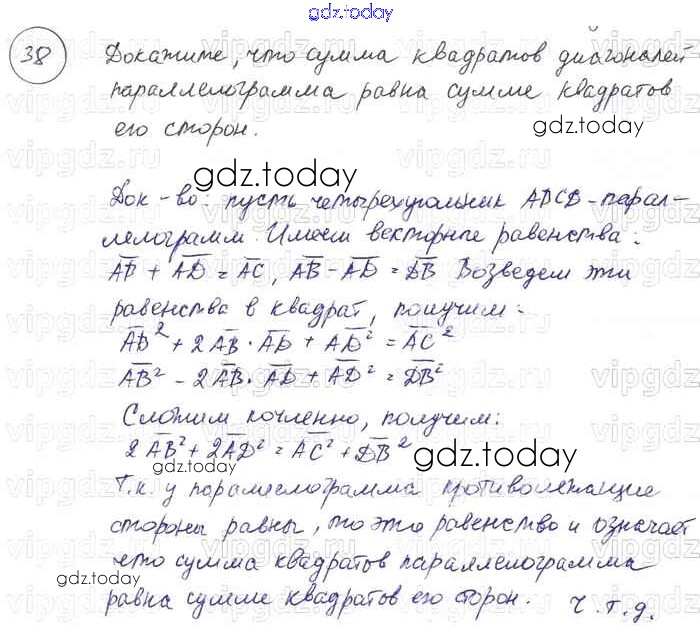 gdz.today
38 Докажите, что сумма квадратов диагоналей
параллелограмма равна сумме квадратов
его сторон.
gdz.today
gdz.today
Док-во: пусть четырехугольник ABCD-парал-
лелограмм. Имеем векторные равенства:
AB + AD = AC, AB - AD = DB Возведем эти
равенства в квадрат, получим:
AB² + 2AB · AD + AD² = AC²
AB² - 2AB · AD + AD² = DB²
Сложим почленно, получим:
gdz.today
2AB² + 2AD² = AC² + DB²
Т.к. у параллелограмма противолежащие
стороны равны, то это равенство и означает
что сумма квадратов параллелограмма
gdz.today
равна сумме квадратов его сторон. ч.т.д.
gdz.today